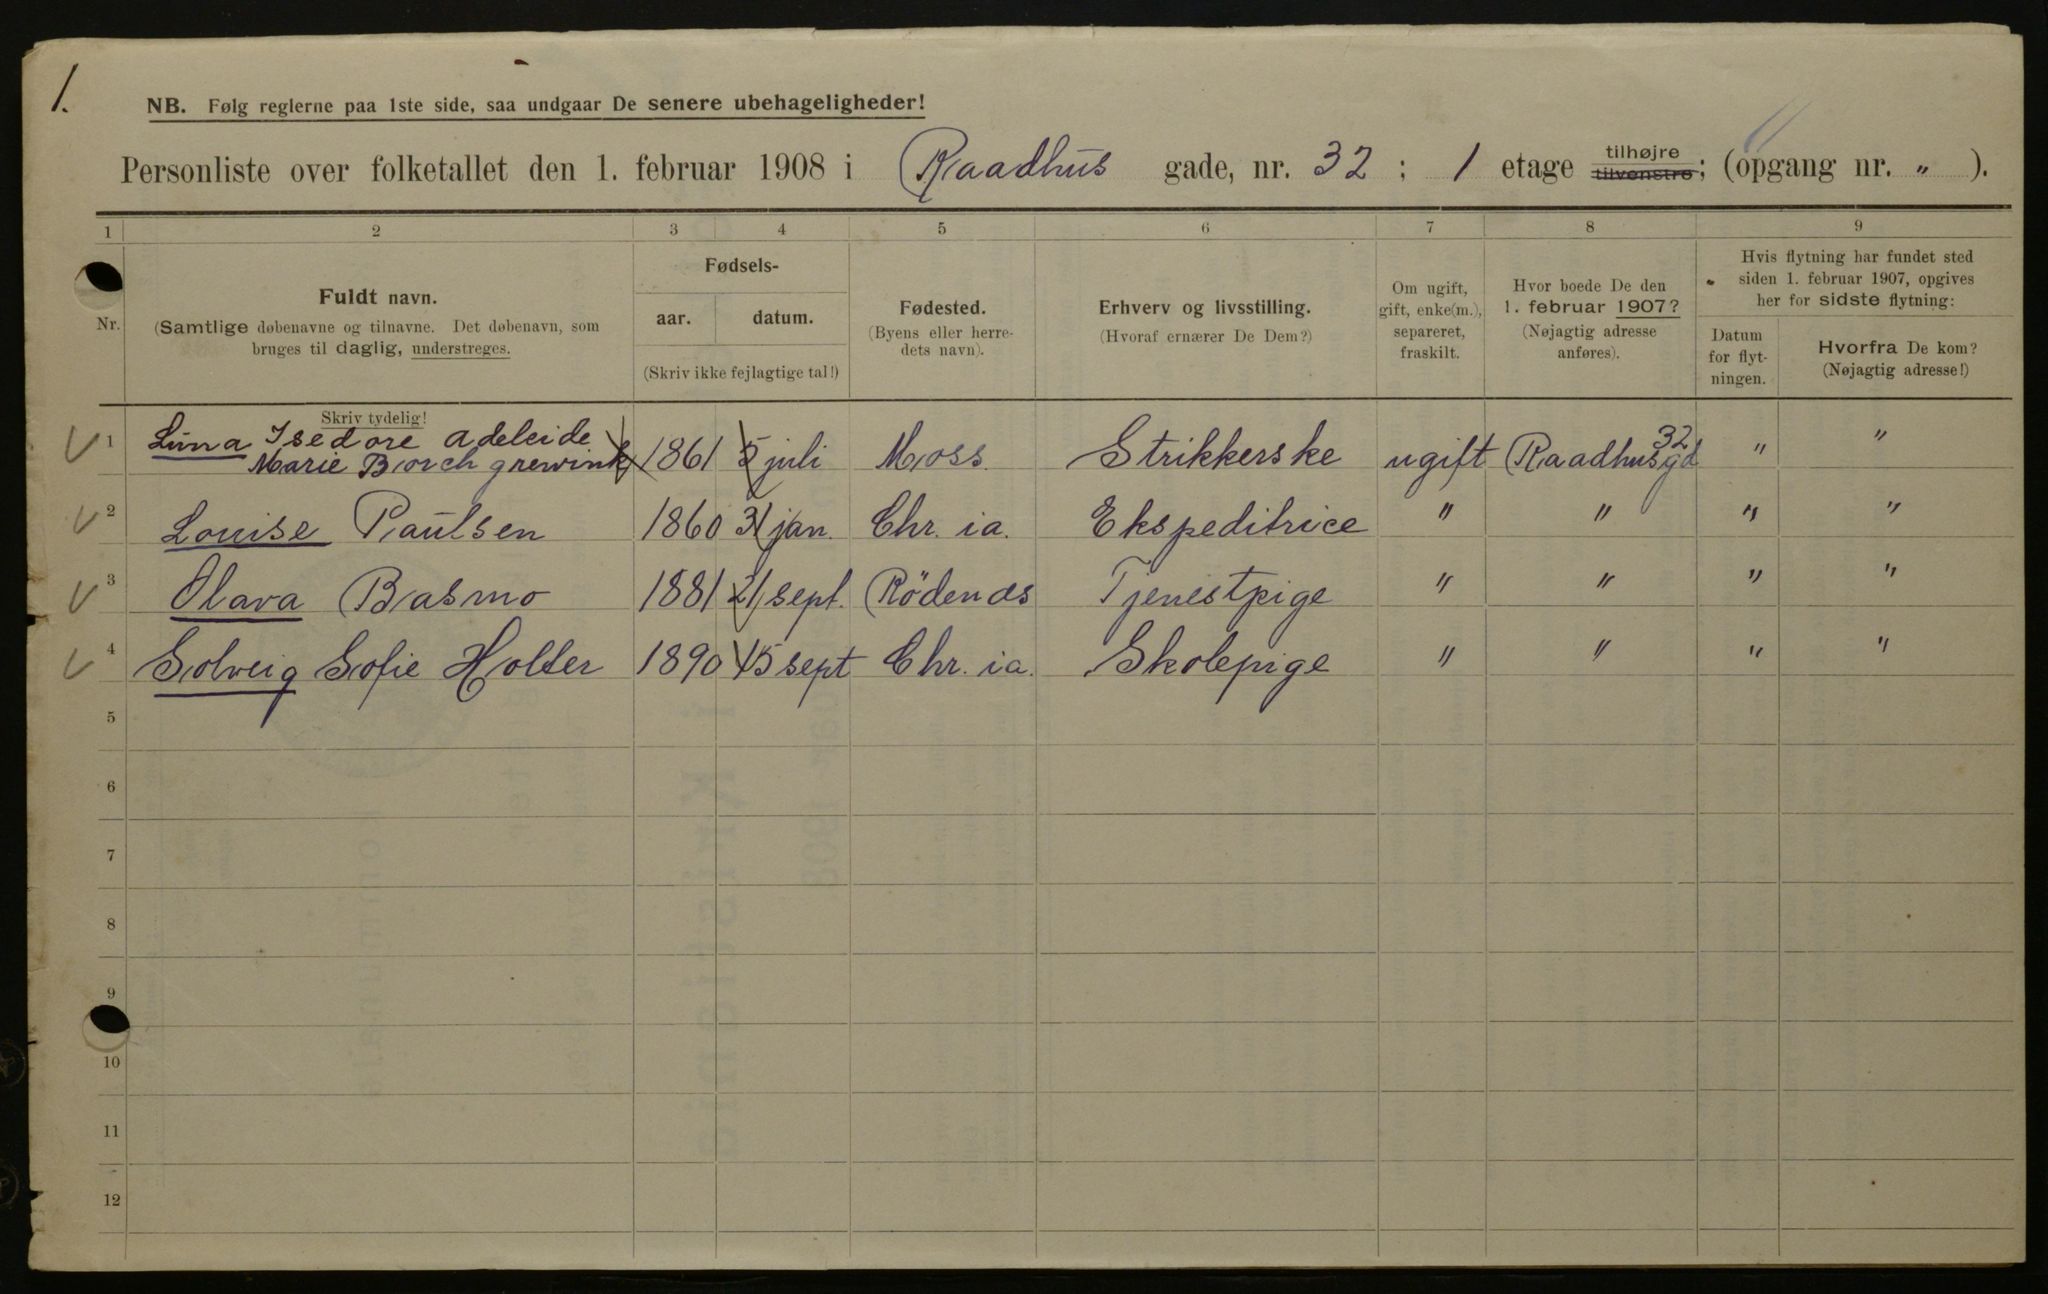 1.
NB. Følg reglerne paa 1ste side, saa undgaar De senere ubehageligheder!
Personliste over folketallet den 1. februar 1908 i Raadhus gade, nr. 32 ; 1 etage tilhøjre tilvenstre; (opgang nr. „ ).
1 2 3 4 5 6 7 8 9
Nr.
Fuldt navn.
(Samtlige døbenavne og tilnavne. Det døbenavn, som
bruges til daglig, understreges.
Skriv tydelig!
Fødsels-
aar. datum.
(Skriv ikke fejlagtige tal!)
Fødested.
(Byens eller herre-
dets navn).
Erhverv og livsstilling.
(Hvoraf ernærer De Dem?)
Om ugift,
gift, enke(m.),
separeret,
fraskilt.
Hvor boede De den
1. februar 1907?
(Nøjagtig adresse
anføres).
Hvis flytning har fundet sted
siden 1. februar 1907, opgives
her for sidste flytning:
Datum
for flyt-
ningen.
Hvorfra De kom?
(Nøjagtig adresse!)
1 Lina Isedore Adeleide
Marie Borchgrewink 1861 5/ juli Moss. Strikkerske ugift Raadhusgd 32 " "
2 Louise Paulsen 1860 31/ jan. Chr. ia. Ekspeditrice " " " "
3 Olava Basmo 1881 21/ sept. Rödenæs Tjenestpige " " " "
4 Solveig Sofie Holter 1890 15 sept Chr. ia. Skolepige " " " "
5
6
7
8
9
10
11
12